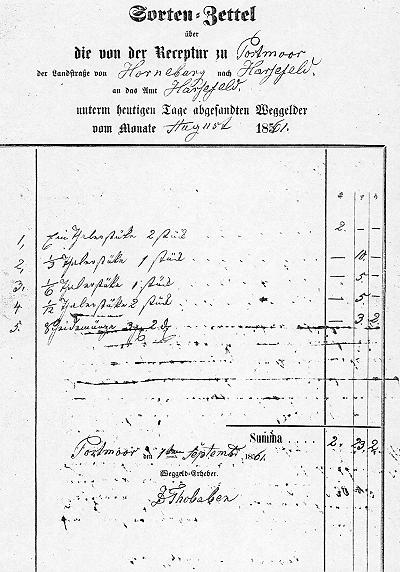 Sorten-Zettel
über
die von der Receptur zu Postmoor
der Landstraße von Horneburg nach Harsefeld.
an das Amt Harsefeld.
unterm heutigen Tage abgesandten Weggelder
vom Monate August 1861.
1, Ein Thalerstüke 2 stük 2. — —
2, 1/3 Thalerstüke 1 stük — 10 —
3, 1/6 Thalerstüke 1 stük — 5 —
4 1/12 Thalerstüke 2 stük — 5 —
5 Scheidemünze 3 2 — 3 2
Summa 2. 23 2
Postmoor den September 1861.
Weggeld-Erheber.
Thobaben